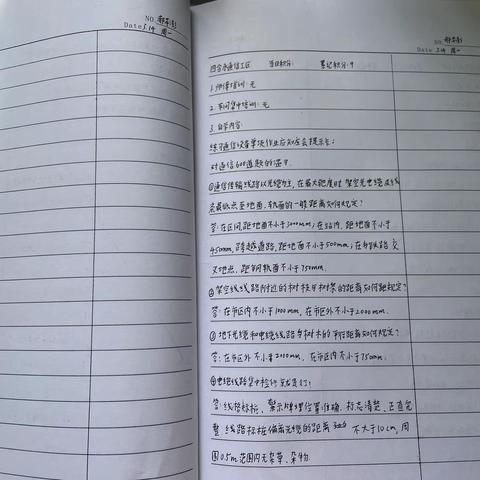 NO.
Date 3.14 周一
NO.
Date 3.14 周一
四合永通信工区 当日积分: 笔记积分:4
1.师带培训:无
2.车间集中培训:无
3.自学内容:
练习通信设备单项作业应知应会提示卡;
对通信600道题的温习.
①通信传输线路以光缆为主,在最大弛度时架空光电缆及线
条最低点至地面,轨面的一般距离如何规定?
答:在区间,距地面不小于3000mm;在站内,距地面不小于
4500mm,跨越道路,距地面不小于5500mm;在与铁路交
叉地点,距钢轨面不小于7500mm.
②架空线线路附近的树枝与树梢的距离如何距规定?
答:在市区内不小于1000mm,在市区外不小于2000mm.
③地下光缆和电缆线路与树木的平行距离如何规定?
答:在市区外不小于2000mm,在市区内不小于750mm.
④电缆线路集中检修包括是?
答:线路标桩、警示牌埋设位置准确,标志清楚、正直完
整,线路标桩偏离光缆的距离 不大于10cm,周
围0.5m范围内无杂草、杂物.